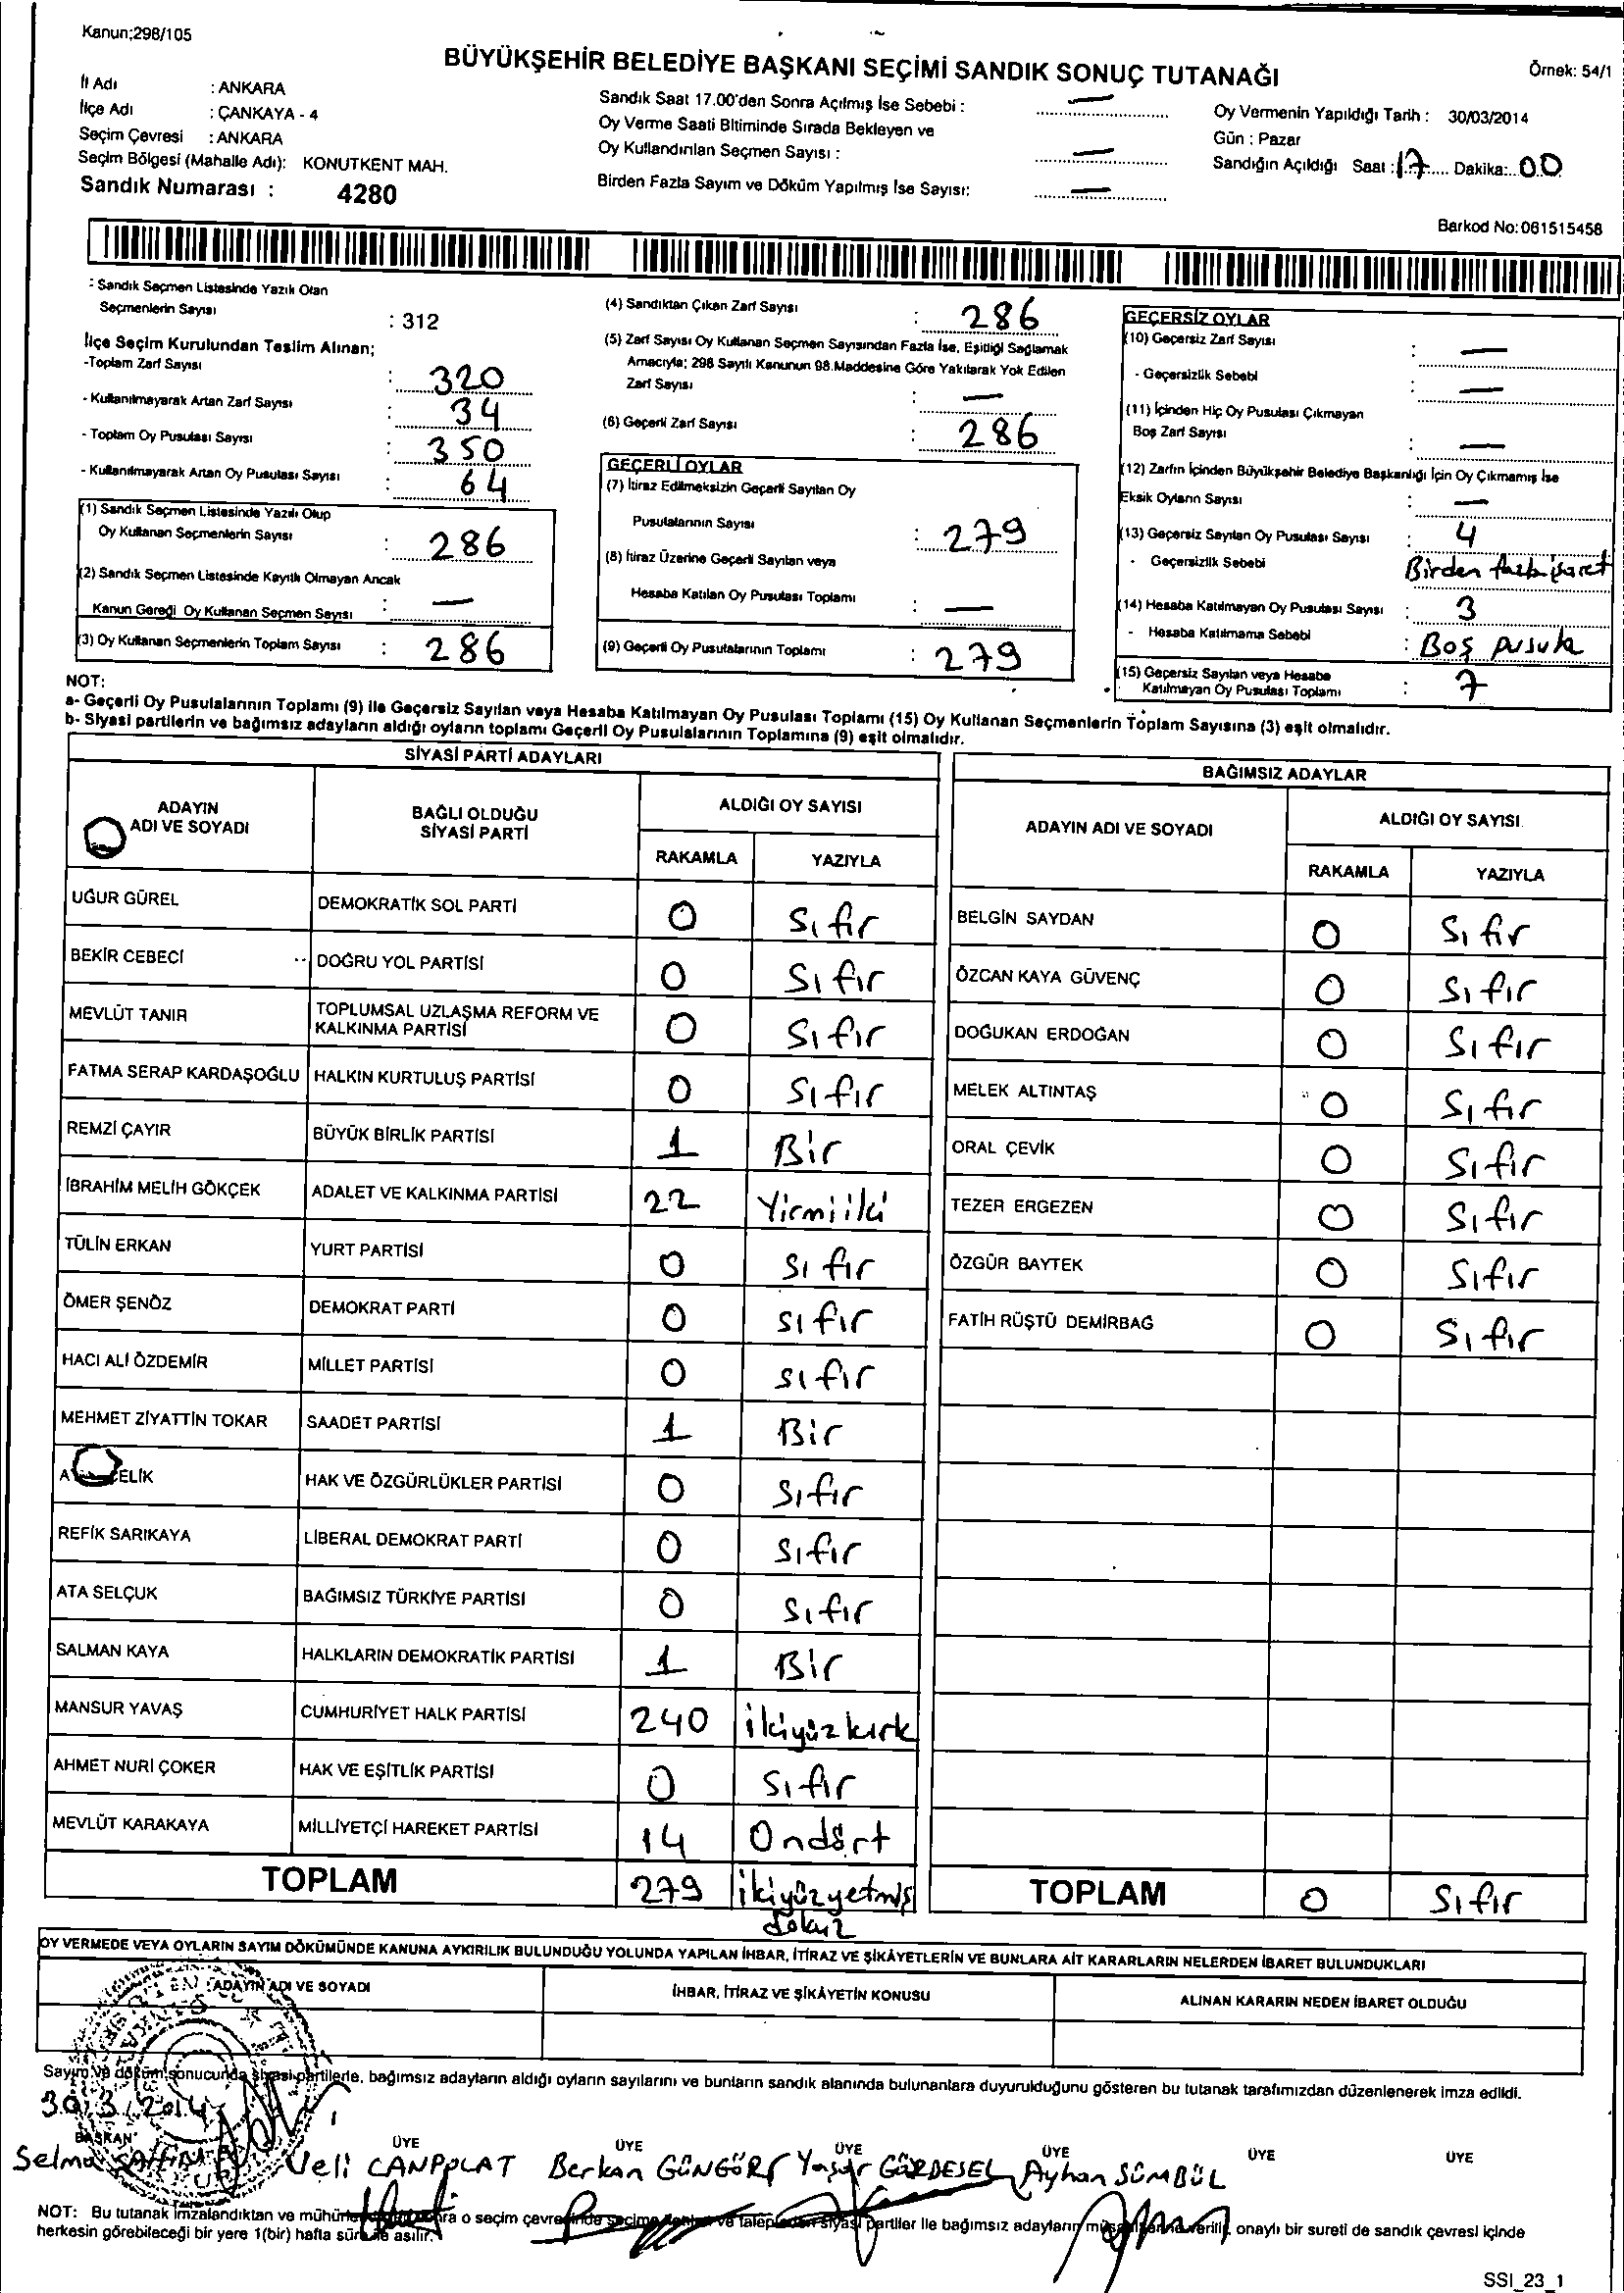 Kanun;298/105
BÜYÜKŞEHİR BELEDİYE BAŞKANI SEÇİMİ SANDIK SONUÇ TUTANAĞI
Örnek: 54/1
İl Adı : ANKARA
İlçe Adı : ÇANKAYA - 4
Seçim Çevresi : ANKARA
Seçim Bölgesi (Mahalle Adı): KONUTKENT MAH.
Sandık Numarası : 4280
Sandık Saat 17.00'den Sonra Açılmış İse Sebebi : —
Oy Verme Saati Bitiminde Sırada Bekleyen ve
Oy Kullandırılan Seçmen Sayısı : —
Birden Fazla Sayım ve Döküm Yapılmış İse Sayısı: —
Oy Vermenin Yapıldığı Tarih : 30/03/2014
Gün : Pazar
Sandığın Açıldığı Saat : 17 Dakika: 00
Barkod No:061515458
Sandık Seçmen Listesinde Yazılı Olan
Seçmenlerin Sayısı : 312
İlçe Seçim Kurulundan Teslim Alınan;
-Toplam Zarf Sayısı : 320
- Kullanılmayarak Artan Zarf Sayısı : 34
- Toplam Oy Pusulası Sayısı : 350
- Kullanılmayarak Artan Oy Pusulası Sayısı : 64
(1) Sandık Seçmen Listesinde Yazılı Olup
Oy Kullanan Seçmenlerin Sayısı : 286
(2) Sandık Seçmen Listesinde Kayıtlı Olmayan Ancak
Kanun Gereği Oy Kullanan Seçmen Sayısı : —
(3) Oy Kullanan Seçmenlerin Toplam Sayısı : 286
(4) Sandıktan Çıkan Zarf Sayısı : 286
(5) Zarf Sayısı Oy Kullanan Seçmen Sayısından Fazla İse, Eşitliği Sağlamak
Amacıyla; 298 Sayılı Kanunun 98.Maddesine Göre Yakılarak Yok Edilen
Zarf Sayısı : —
(6) Geçerli Zarf Sayısı : 286
GEÇERLİ OYLAR
(7) İtiraz Edilmeksizin Geçerli Sayılan Oy
Pusulalarının Sayısı : 279
(8) İtiraz Üzerine Geçerli Sayılan veya
Hesaba Katılan Oy Pusulası Toplamı : —
(9) Geçerli Oy Pusulalarının Toplamı : 279
GEÇERSİZ OYLAR
(10) Geçersiz Zarf Sayısı : —
- Geçersizlik Sebebi : —
(11) İçinden Hiç Oy Pusulası Çıkmayan
Boş Zarf Sayısı : —
(12) Zarfın İçinden Büyükşehir Belediye Başkanlığı İçin Oy Çıkmamış İse
Eksik Oyların Sayısı : —
(13) Geçersiz Sayılan Oy Pusulası Sayısı : 4
- Geçersizlik Sebebi Birden fazla işaret
(14) Hesaba Katılmayan Oy Pusulası Sayısı : 3
- Hesaba Katılmama Sebebi : Boş pusula
(15) Geçersiz Sayılan veya Hesaba
Katılmayan Oy Pusulası Toplamı : 7
NOT:
a- Geçerli Oy Pusulalarının Toplamı (9) ile Geçersiz Sayılan veya Hesaba Katılmayan Oy Pusulası Toplamı (15) Oy Kullanan Seçmenlerin Toplam Sayısına (3) eşit olmalıdır.
b- Siyasi partilerin ve bağımsız adayların aldığı oyların toplamı Geçerli Oy Pusulalarının Toplamına (9) eşit olmalıdır.
SİYASİ PARTİ ADAYLARI
ADAYIN ADI VE SOYADI BAĞLI OLDUĞU SİYASİ PARTİ ALDIĞI OY SAYISI
RAKAMLA YAZIYLA
UĞUR GÜREL DEMOKRATİK SOL PARTİ 0 Sıfır
BEKİR CEBECİ DOĞRU YOL PARTİSİ 0 Sıfır
MEVLÜT TANIR TOPLUMSAL UZLAŞMA REFORM VE KALKINMA PARTİSİ 0 Sıfır
FATMA SERAP KARDAŞOĞLU HALKIN KURTULUŞ PARTİSİ 0 Sıfır
REMZİ ÇAYIR BÜYÜK BİRLİK PARTİSİ 1 Bir
İBRAHİM MELİH GÖKÇEK ADALET VE KALKINMA PARTİSİ 22 Yirmiiki
TÜLİN ERKAN YURT PARTİSİ 0 Sıfır
ÖMER ŞENÖZ DEMOKRAT PARTİ 0 sıfır
HACI ALİ ÖZDEMİR MİLLET PARTİSİ 0 sıfır
MEHMET ZİYATTİN TOKAR SAADET PARTİSİ 1 Bir
ÇELİK HAK VE ÖZGÜRLÜKLER PARTİSİ 0 Sıfır
REFİK SARIKAYA LİBERAL DEMOKRAT PARTİ 0 Sıfır
ATA SELÇUK BAĞIMSIZ TÜRKİYE PARTİSİ 0 Sıfır
SALMAN KAYA HALKLARIN DEMOKRATİK PARTİSİ 1 Bir
MANSUR YAVAŞ CUMHURİYET HALK PARTİSİ 240 ikiyüzkırk
AHMET NURİ ÇOKER HAK VE EŞİTLİK PARTİSİ 0 Sıfır
MEVLÜT KARAKAYA MİLLİYETÇİ HAREKET PARTİSİ 14 Ondört
TOPLAM 279 ikiyüzyetmiş dokuz
BAĞIMSIZ ADAYLAR
ADAYIN ADI VE SOYADI ALDIĞI OY SAYISI
RAKAMLA YAZIYLA
BELGİN SAYDAN 0 Sıfır
ÖZCAN KAYA GÜVENÇ 0 Sıfır
DOĞUKAN ERDOĞAN 0 Sıfır
MELEK ALTINTAŞ 0 Sıfır
ORAL ÇEVİK 0 Sıfır
TEZER ERGEZEN 0 Sıfır
ÖZGÜR BAYTEK 0 Sıfır
FATİH RÜŞTÜ DEMİRBAĞ 0 Sıfır
TOPLAM 0 Sıfır
OY VERMEDE VEYA OYLARIN SAYIM DÖKÜMÜNDE KANUNA AYKIRILIK BULUNDUĞU YOLUNDA YAPILAN İHBAR, İTİRAZ VE ŞİKÂYETLERİN VE BUNLARA AİT KARARLARIN NELERDEN İBARET BULUNDUKLARI
ADAYIN ADI VE SOYADI İHBAR, İTİRAZ VE ŞİKÂYETİN KONUSU ALINAN KARARIN NEDEN İBARET OLDUĞU
Sayım ve döküm sonucunda siyasi partilerle, bağımsız adayların aldığı oyların sayılarını ve bunların sandık alanında bulunanlara duyurulduğunu gösteren bu tutanak tarafımızdan düzenlenerek imza edildi.
30/3/2014
BAŞKAN ÜYE ÜYE ÜYE ÜYE ÜYE ÜYE
Selma Veli CANPOLAT Berkan GÜNGÖR Yaşar GÜRDESEL Ayhan SÜMBÜL
NOT: Bu tutanak imzalandıktan ve mühürlendikten sonra o seçim çevresinde seçime katılan ve talep eden siyasi partiler ile bağımsız adayların müşahitlerine verilir, onaylı bir sureti de sandık çevresi içinde
herkesin görebileceği bir yere 1(bir) hafta süre ile asılır.
SSI_23_1